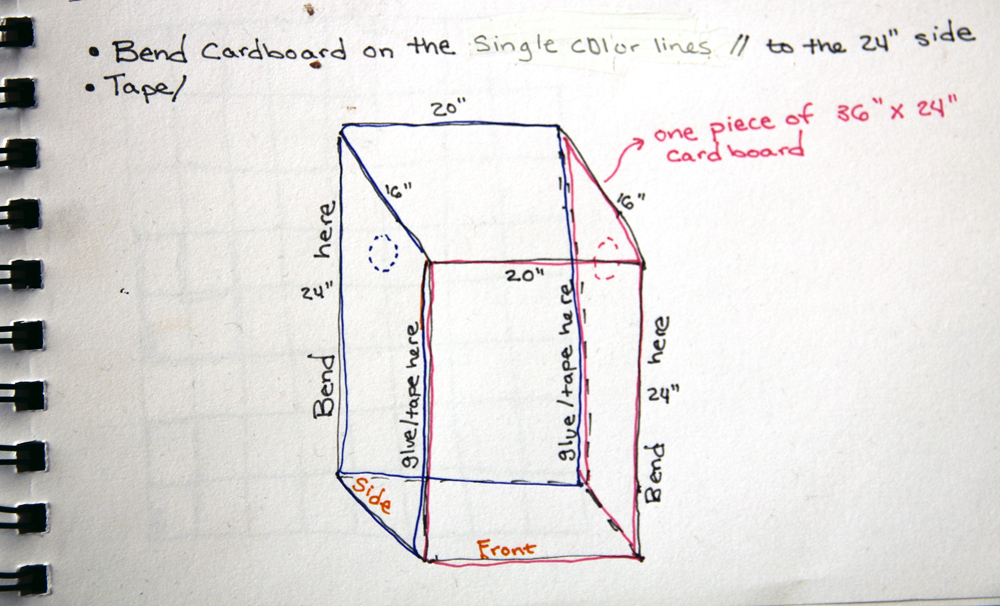 • Bend Cardboard on the Single color lines // to the 24" side
• Tape/
20"
one piece of 36" x 24"
cardboard
16"
16"
Bend 24" here
20"
glue/tape here
glue/tape here
Bend 24" here
Side
Front